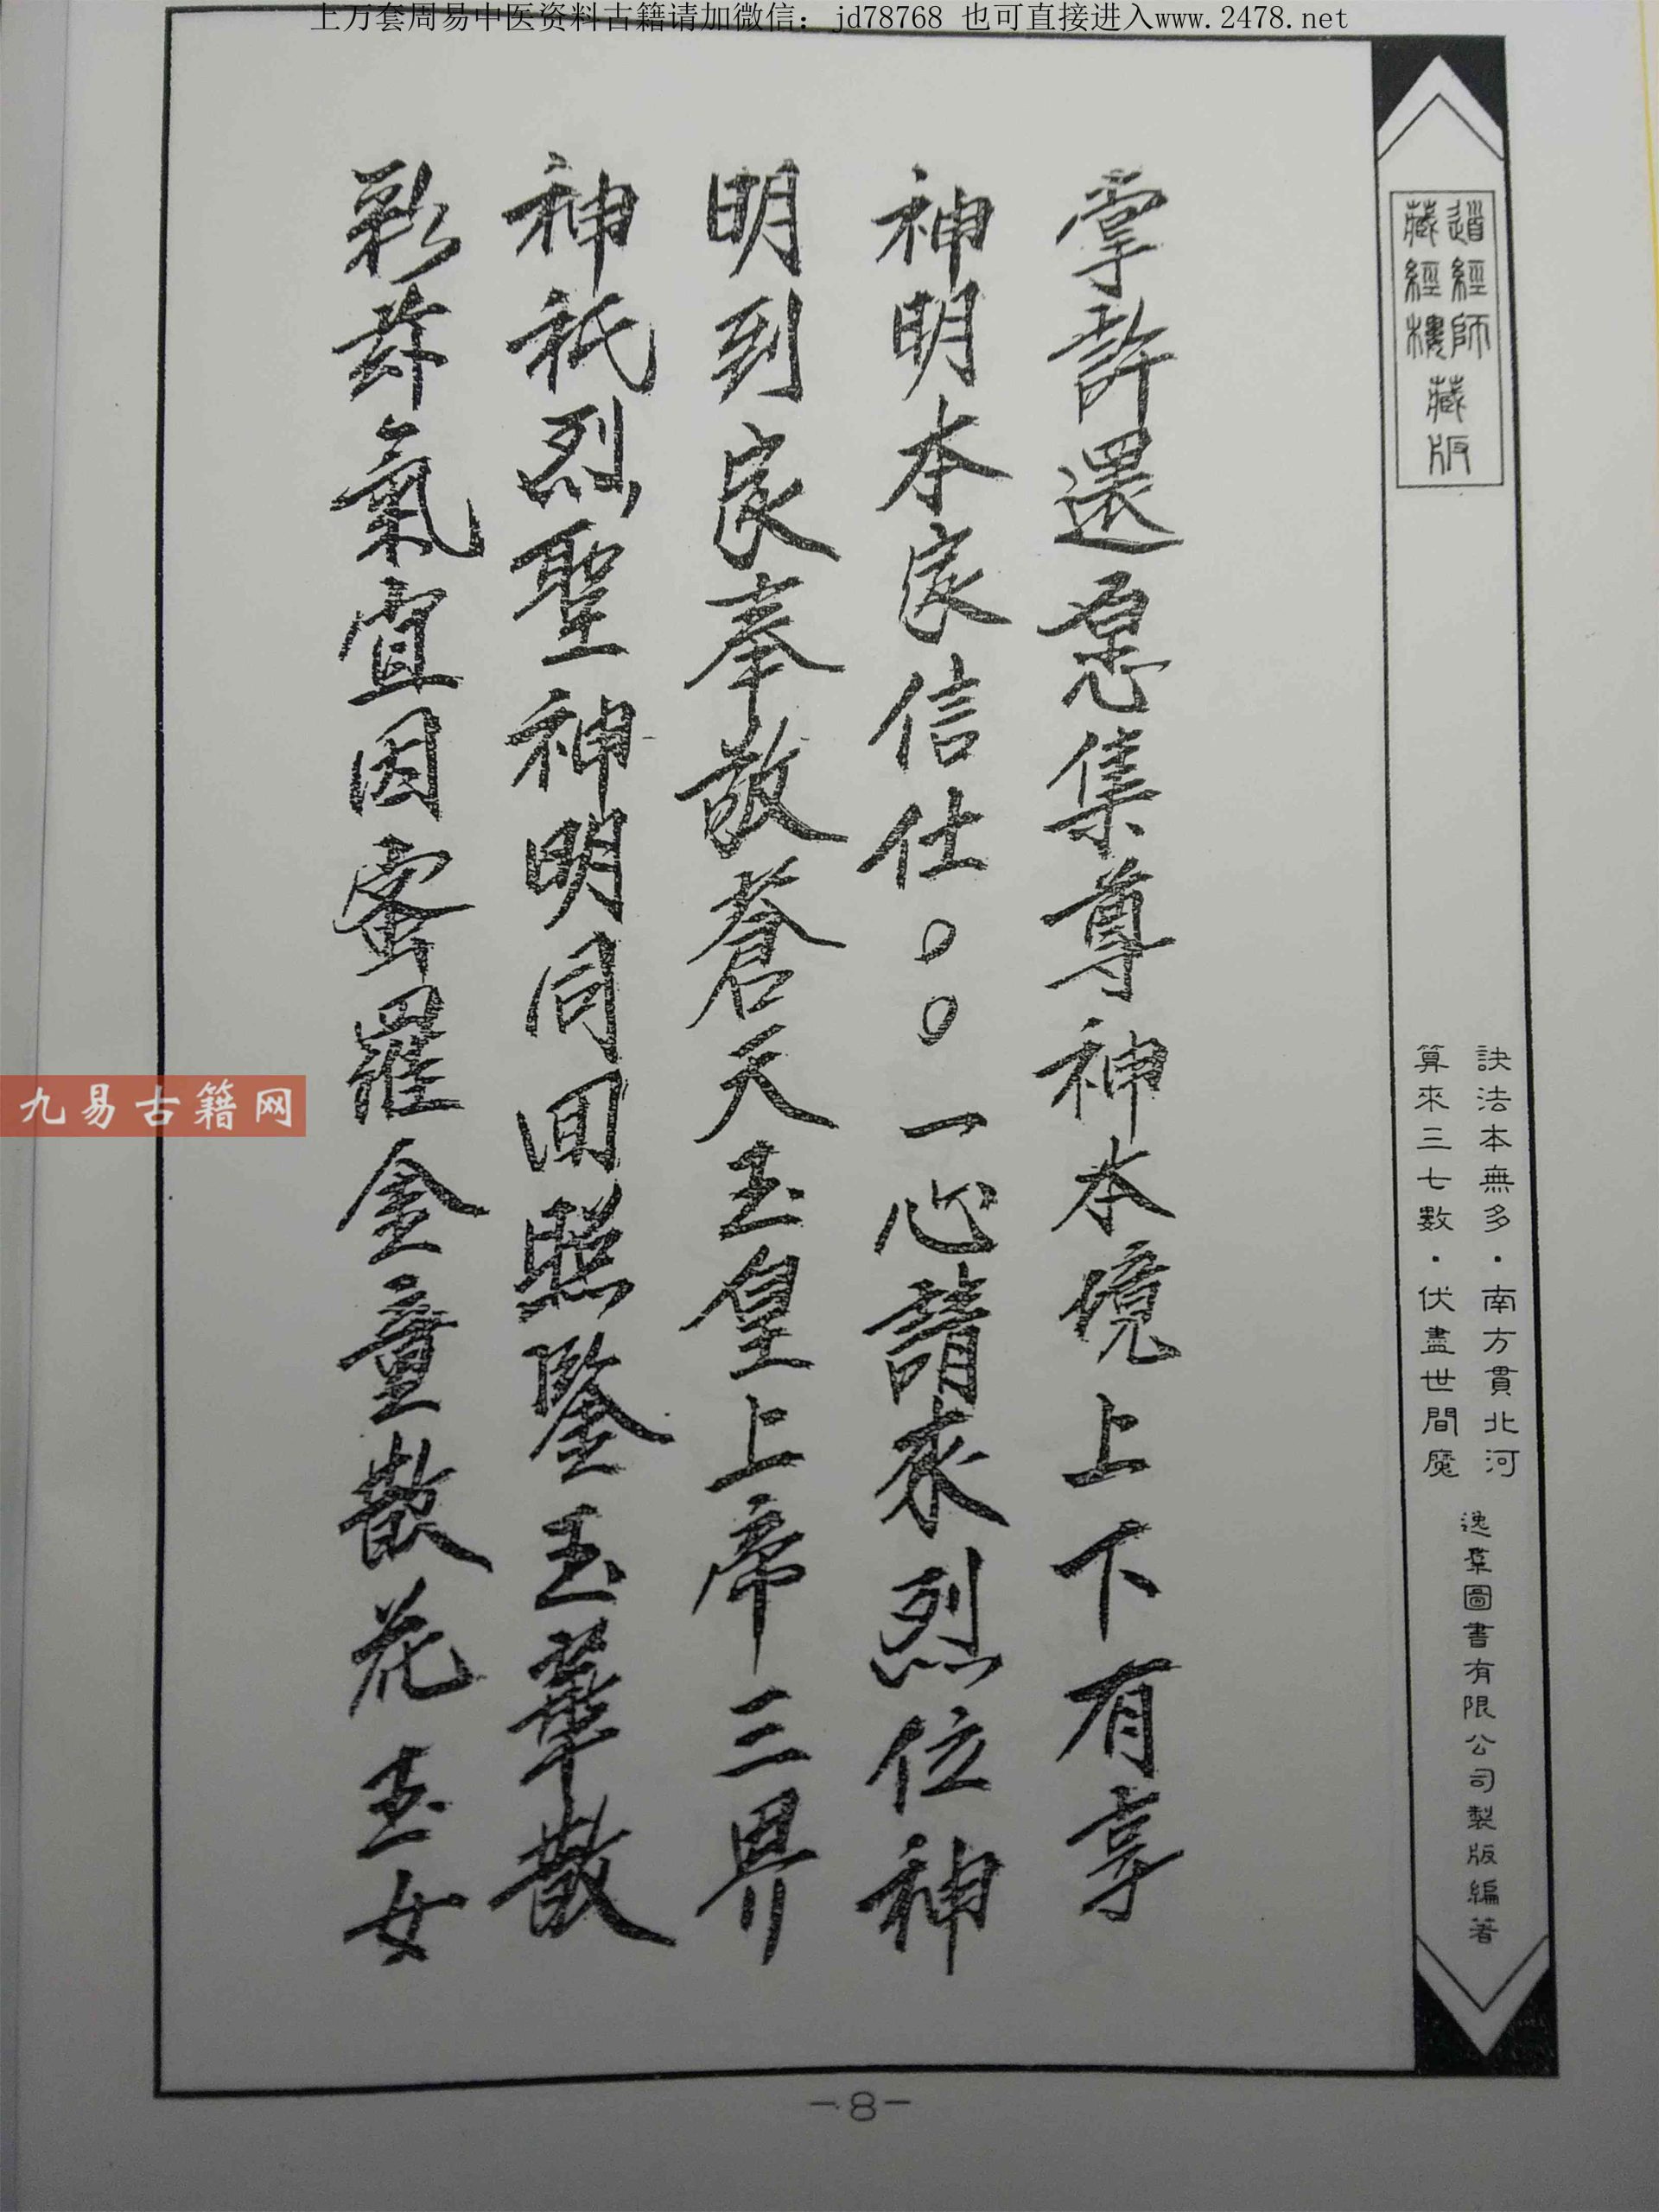 上万套周易中医资料古籍请加微信：jd78768 也可直接进入www.2478.net
道經師
藏經樓
藏版
訣法本無多·南方貫北河
算來三七數·伏盡世間魔
逸羣圖書有限公司製版編著
掌許還愿集尊神本境上下有享
神明本家信仕。。一心請求烈位神
明到家奉敬蒼天玉皇上帝三界
神祇烈聖神明同回照鑒玉輦散
彩 氣 因 羅金童散花玉女
九易古籍网
-8-